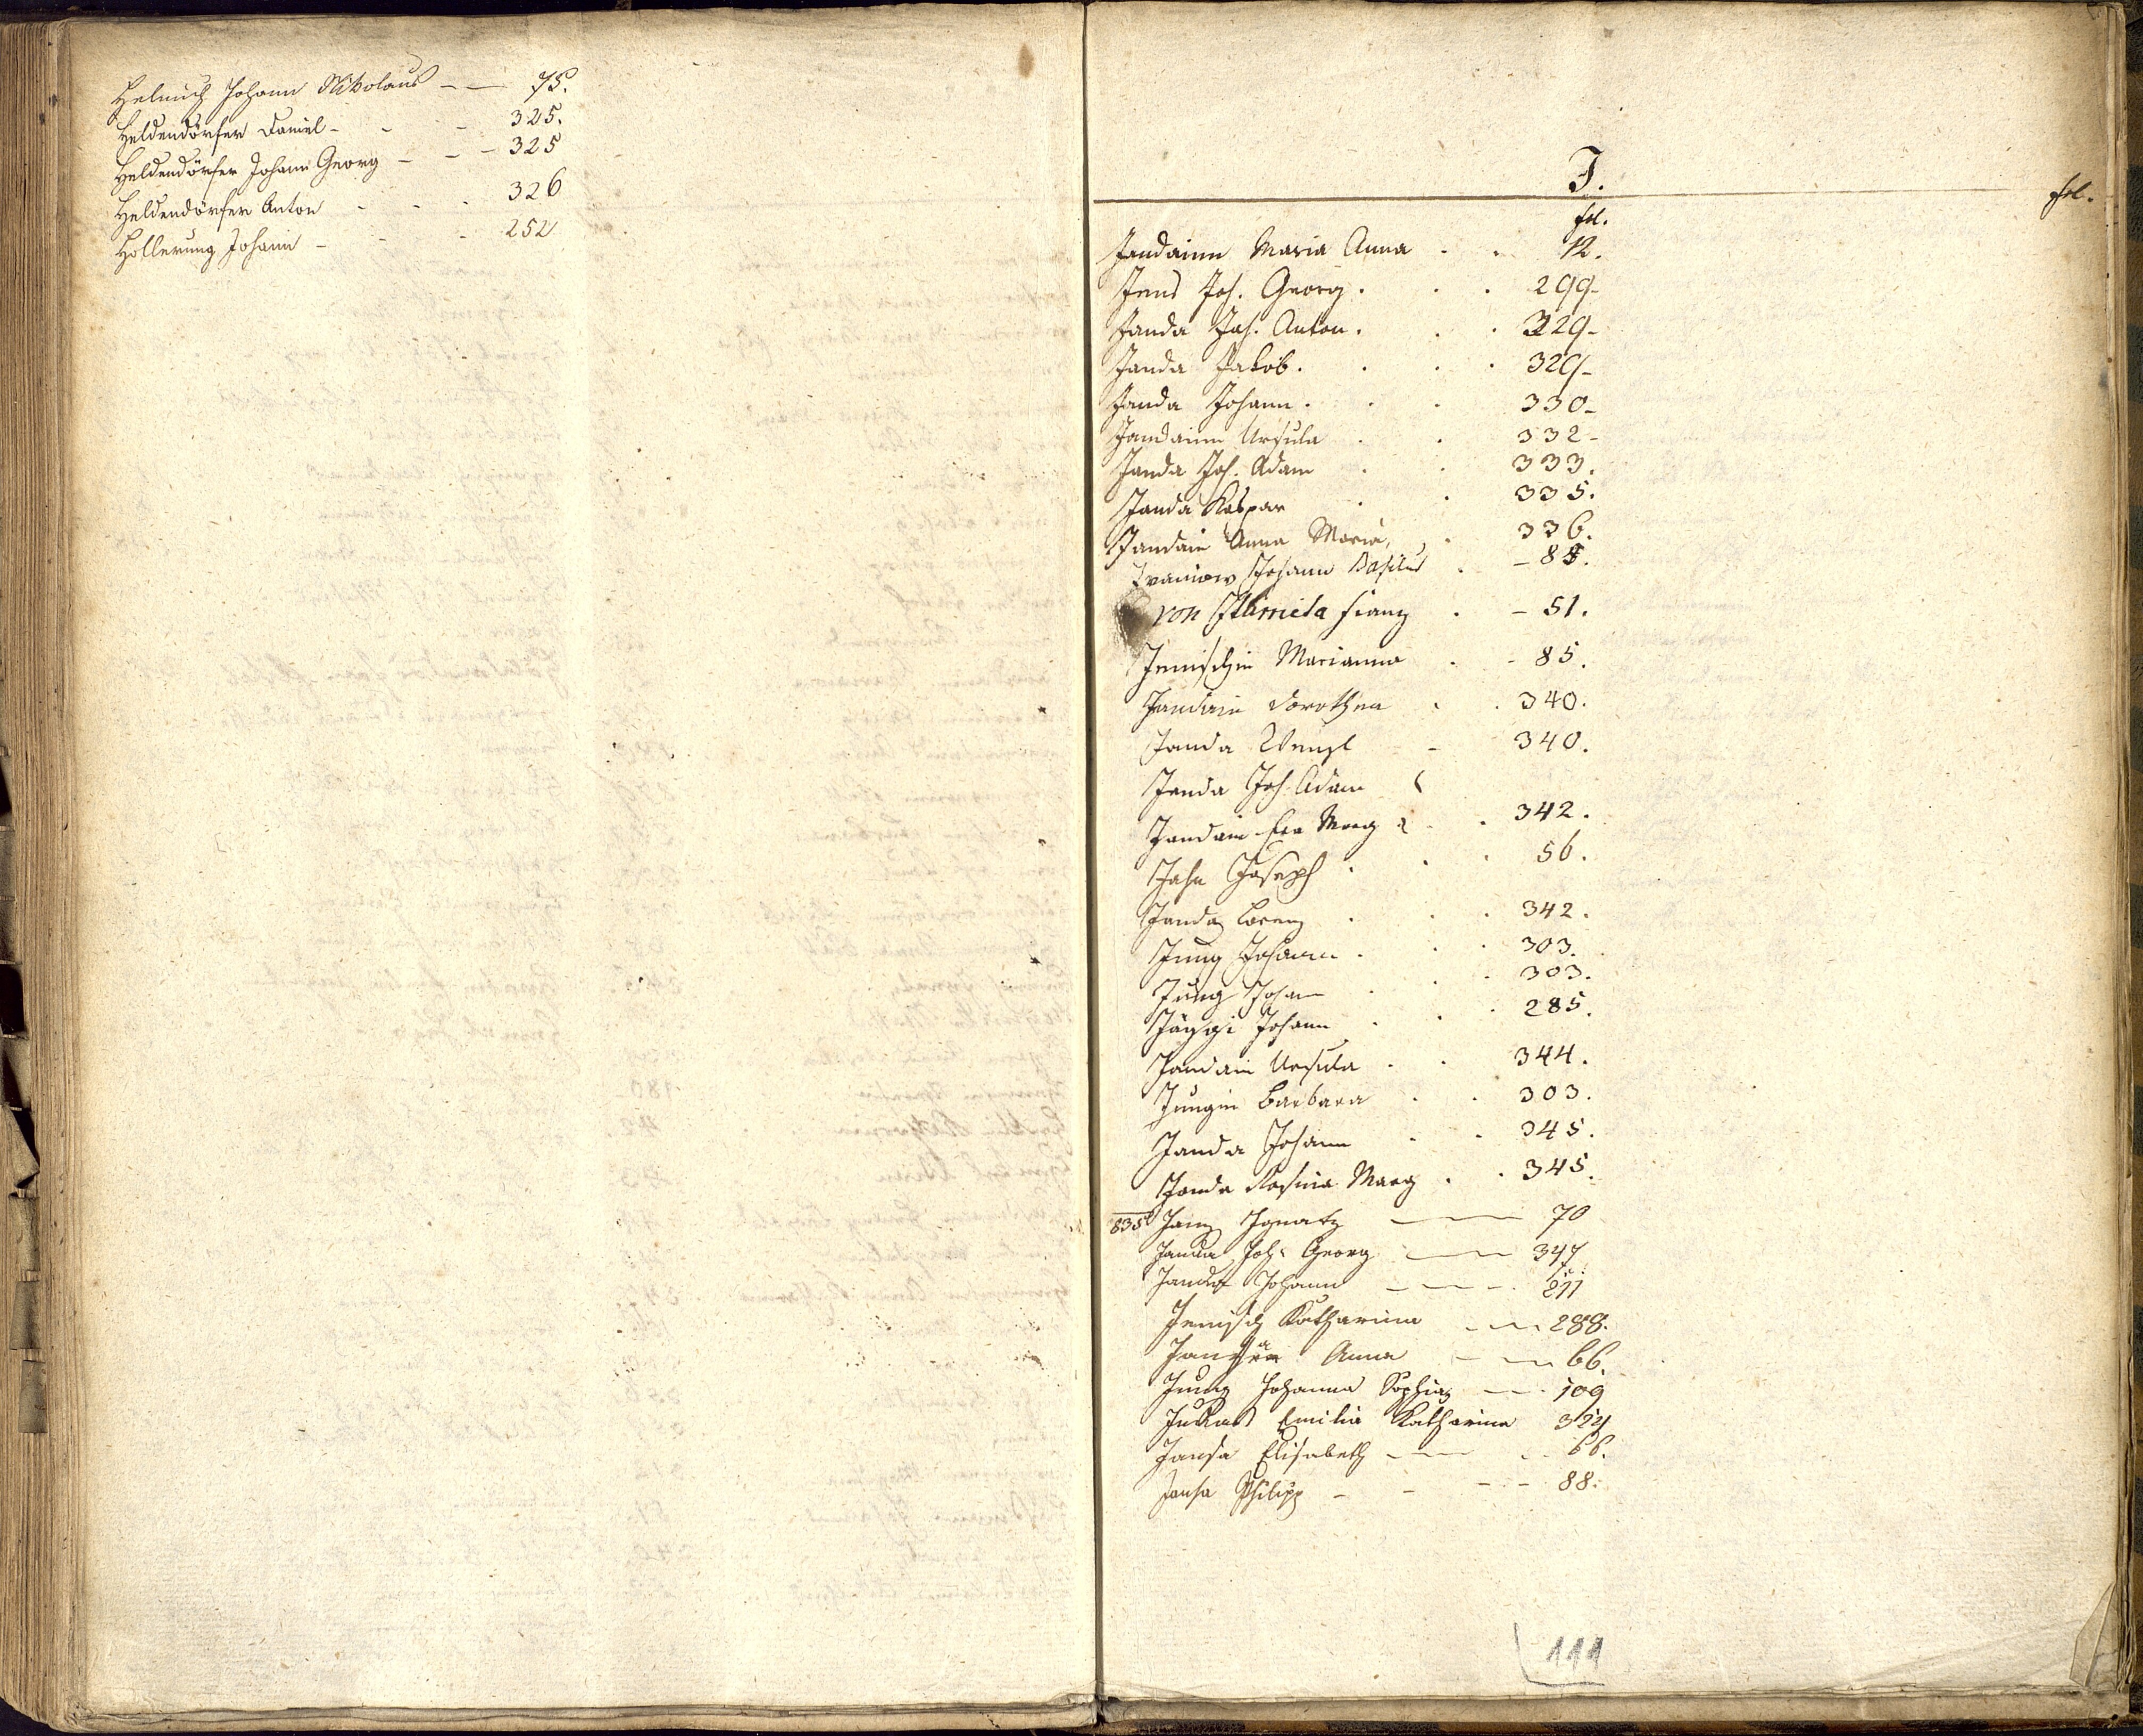 Helmich Johann Nikolaus - - 75.
Heldendörfer Daniel - - - 325.
Heldendörfer Johann Georg - - - 325
Heldendörfer Anton - - - 326
Hollerung Johann - - - 252
J.
fol.
fol.
Jandainn Maria Anna . . 12.
Jens Joh. Georg . . . 299-
Janda Joh. Anton . . . 329-
Janda Jakob . . . 329-
Janda Johann . . . 330-
Jandainn Ursula . . 332-
Janda Joh. Adam . . 333.
Janda Kaspar . . 335.
Jandain Anna Maria, . 336.
Johann Basilius . -
von Franz . - 51.
Jenischin Marianna . - 85.
Jandain Dorothea . . 340.
Janda Wenzl - 340.
Janda Joh. Adam
Jandain Eva Marg . . 342.
Jahn Joseph . . . 56.
Janda Lorenz . . 342.
Jung Johann . . . 303.
Jung Johann . . 303.
Johann . . . 285.
Jandain Ursula . . 344.
Jungin Barbara . . 303.
Janda Johann . . 345.
Janda Rosina Marg . . 345.
835 Ignatz — 70
Janda Joh. Georg — 347
Janda Johann - - - 211
Jenisch Katharina - - 288.
Anna - - 66.
Jung Johanna Sophia - - 109
Emilia Katharina
Jansa Elisabeth - - - 66.
Jansa Philipp - - - - 88.
111